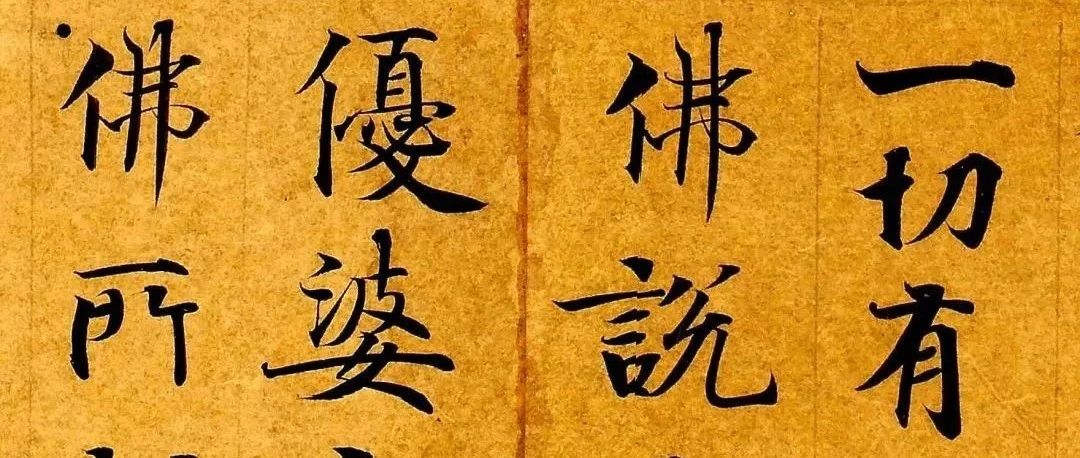 一切有
佛說
優婆
佛所